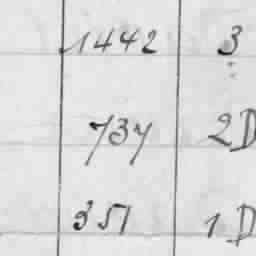 1442 3
737 2D
351 1D